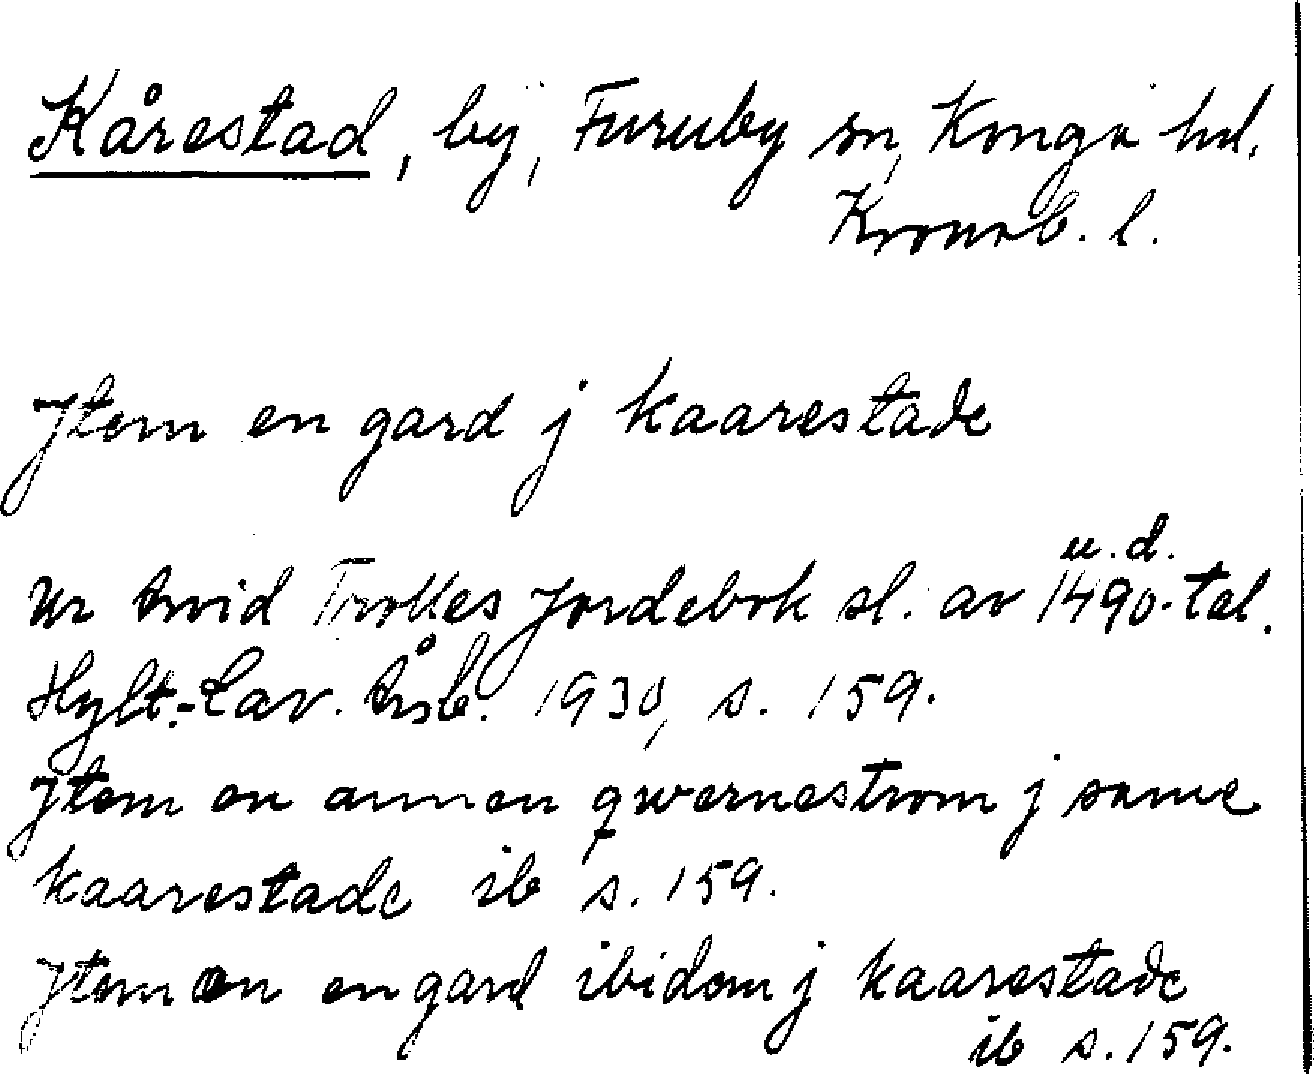 Kårestad, by, Furuby sn, Konga hd.
Kronob. l.
Jtem en gard j kaarestade
u. d.
Ur Arvid Trolles Jordebok sl. av 1490-tal.
Hylt.-Cav. Årsb. 1930, s. 159.
Jtem en annen qwernestrom j same
kaarestade ib s. 159.
Jtem en en gard ibidem j kaarestade
ib s. 159.